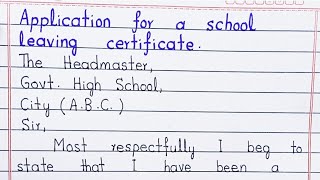 Application for a school
leaving certificate.
The Headmaster,
Govt. High School,
City (A.B.C.)
Sir,
Most respectfully I beg to
state that I have been a